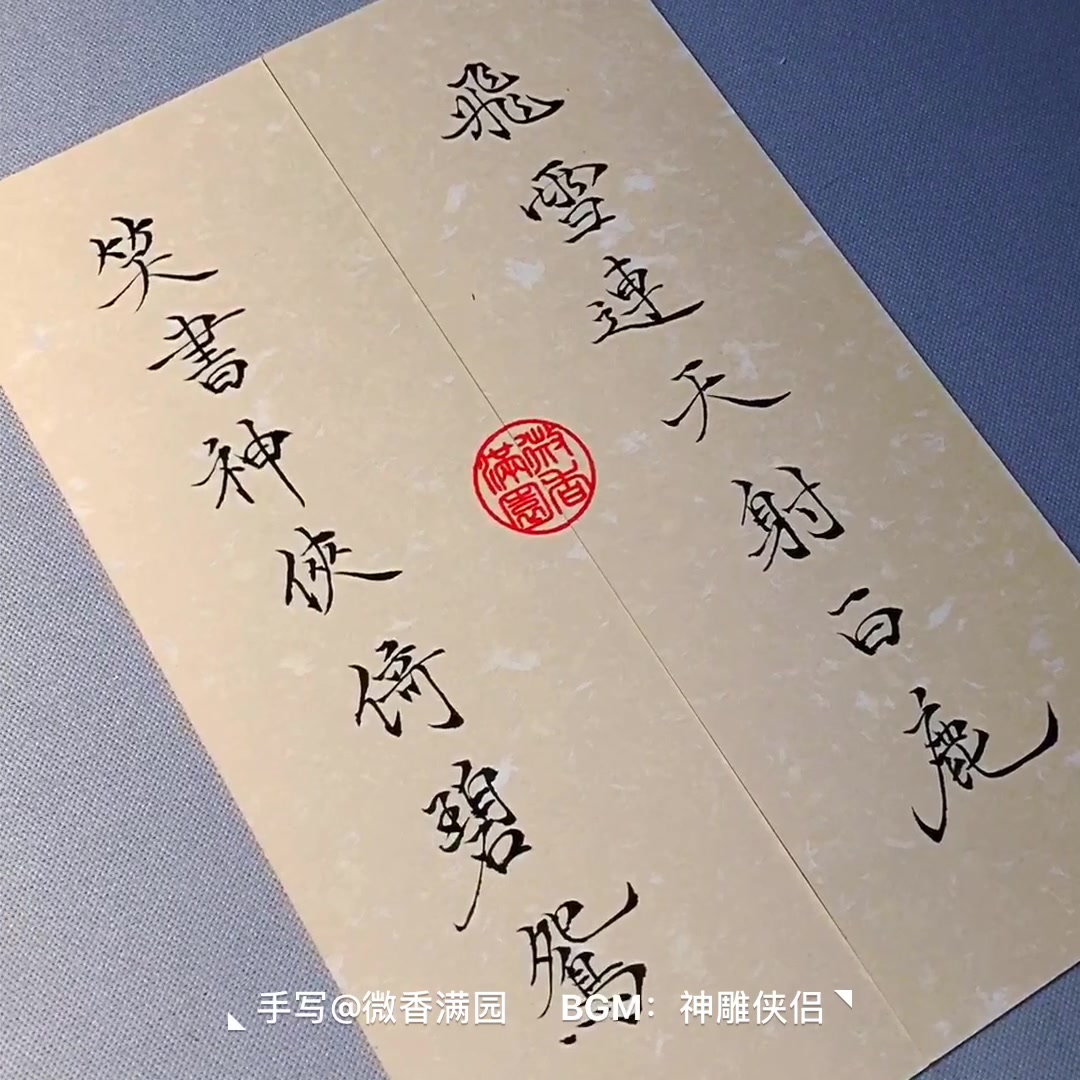 飛雪連天射白鹿
笑書神俠倚碧鴛
微香
滿園
手写@微香满园 BGM：神雕侠侣